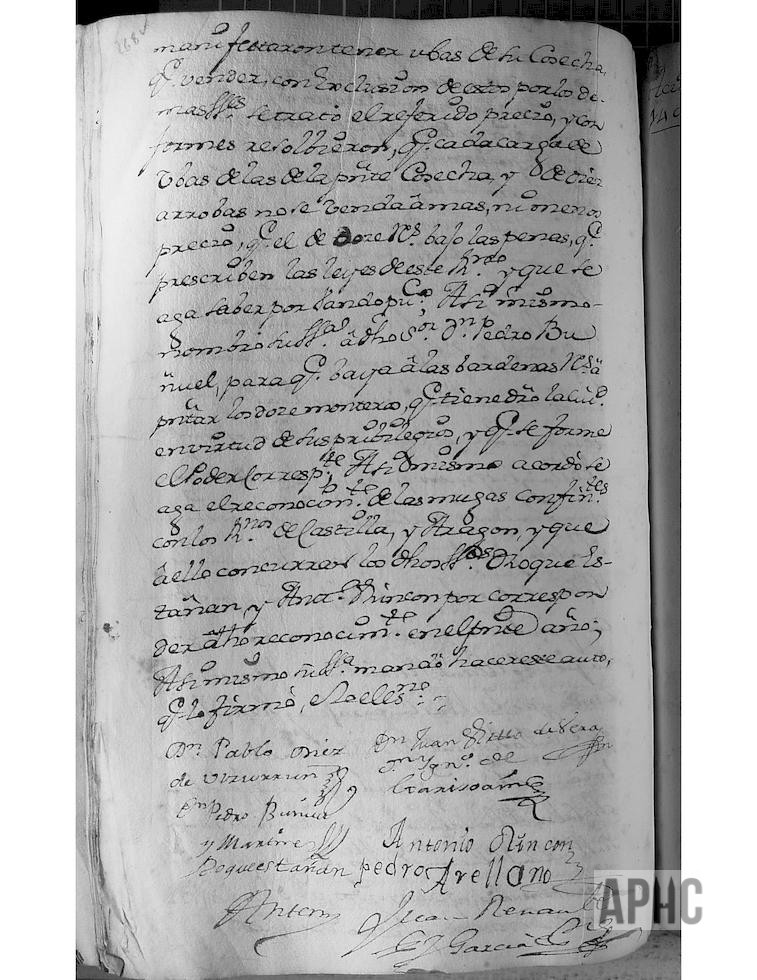 268
manifestaron tener vbas de su Cosecha,
q.e vender, con Exclusion de estos, por los de-
mas SS.es se trató el referido precio, y con
formes resolbieron, q.e cada carga de
Vbas de las de la pnte Cosecha, y de diez
arrobas no se venda â mas, ni menos
precio, q.e el de doze R.s bajo las penas, q.e
prescriben las leyes de este R.no y que se
aga saber por bando pu.co Asi mismo
nombró su SS.a â dho S.or D.n Pedro Bu
ñuel, para q.e baya â las bardenas R.s â
pntar los doze monteros, q.e tiene dro la Ciu.d
en virtud de sus pribilegios, y q.e se forme
el Poder Corresp.te Asi mismo acordó se
aga el reconocim.to de las mugas confin.tes
con los R.nos de Castilla, y Aragon, y que
â ello concurran los dhos SS.es Roque Es-
tañan, y Ant.o Rincon por correspon
der â dho reconocim.to en el pnte año;
Asi mismo su SS.a mandó hacer este auto,
q.e lo firmó, e Yo el es.no
D.n Pablo Diez D.n Juan de Vera
de Vlzurrun D.n Ygn.o de
D.n Pedro Buñuel
y Martinez Antonio Rincon
Roque estañan pedro Arellano
Antem
Garcia
APHC